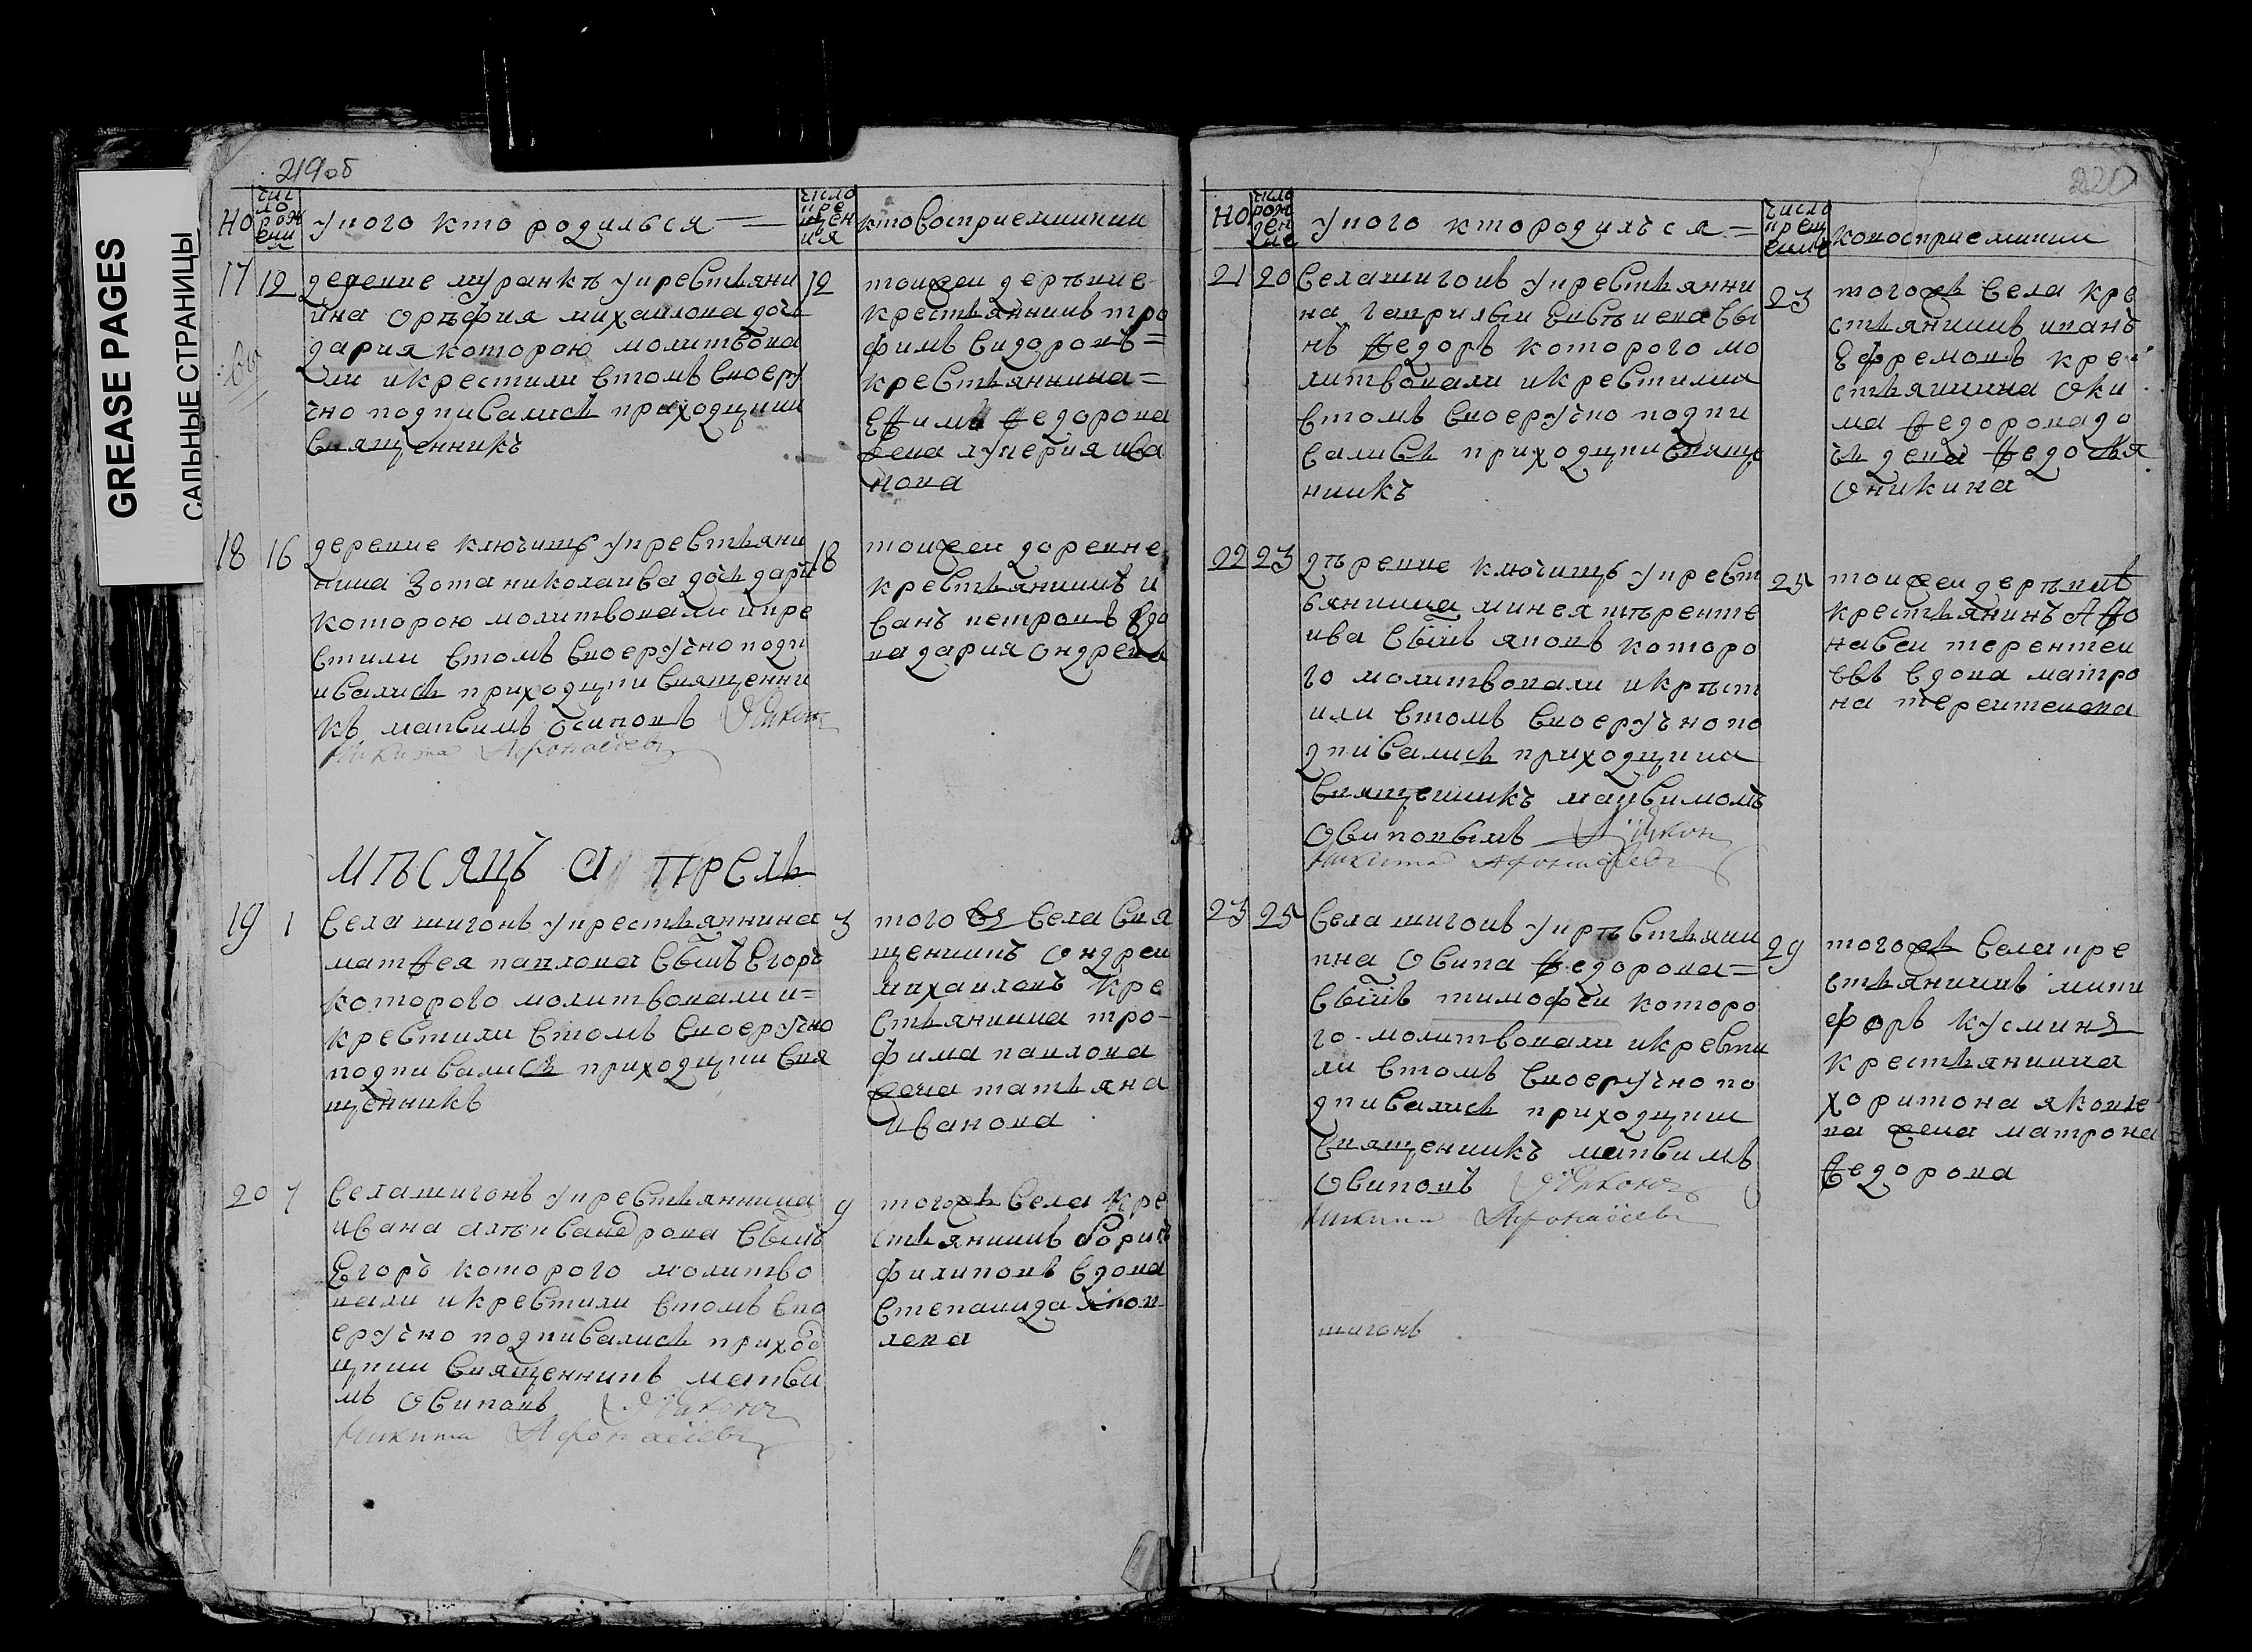 GREASE PAGES
САЛЬНЫЕ СТРАНИЦЫ
219 об
но
число рождения
у кого кто родилъся
число крещения
кто восприемники
17 12 деревне муранкъ у крестьяни
нина михаилова дочь
дария которою молитвова
ли и крестили в томъ своеру
чно подписались приходцкии
священникъ
12 тои жеи дерѣвне
крестьянинъ тро
фимъ сидоровъ
крестьянина
Ефима федорова
жена лукерия ива
нова
18 16 деревне ключищъ у крестьяни
нина Зота николаива дочь дарья
которою молитвовали и кре
стили в томъ своеручно подп
исались приходцки священни
къ максимъ осиповъ Дьякон
Никита Афонасьевъ
18 тои жеи доревне
крестьянинъ и
ванъ петровъ вдо
ва дария ондрева
мѣсяцъ апрель
19 1 села шигонъ у крестьяннина
матфея павлова сынъ Егоръ
которого молитвовали и
крестили в томъ своеручно
подписались приходцки свя
щенникъ
3 того ж села свя
щенникъ ондреи
михаиловъ кре
стьянина тро
фима павлова
жена татьяна
иванова
20 7 села шигонъ у крестьяннина
ивана алѣксандрова сынъ
Егоръ которого молитво
вали и крестили в томъ сво
еручно подписались приход
цкии священникъ макси
мъ осиповъ Дьяконъ
Никита Афонасьевъ
9 того жь села кре
стьянинъ
филиповъ вдова
степанида
220
но
число рожденле
у кого кто родилъся
число крещение
ко восприемники
21 20 села шигонъ у крестьянни
на гаврилы сы
нъ федоръ которого мо
литвовали и крестили
в томъ своеручно подпи
сались приходцки свяще
нникъ
23 того жь села кре
стьянинъ иванъ
Ефремовъ кре
стьянина оки
ма федорова до
чь федосья
22 23 дѣревне ключищъ у крест
ьянина минея тѣренте
ива сынъ яковъ которо
го молитвовали и крѣст
или в томъ своеручно по
дписались приходцкиа
священникъ максимомъ
осиповымъ Дьякон
Никита Афонасьевъ
25 тои жеи дерѣвнѣ
крестьянинъ Афо
насеи терентеи
евъ вдова матро
на терентеиева
23 25 села шигонъ у крѣстьяни
нна осипа федорова
сынъ тимофеи которо
го молитвовали и крести
ли в томъ своеручно по
дписались приходцкии
священникъ максимъ
осиповъ Дьяконъ
Никита Афонасьевъ
29 того жь села кре
стьянинъ ники
форъ кусминъ
крестьянина
хоритона яковле
ва жена матрона
федорова
шигонъ